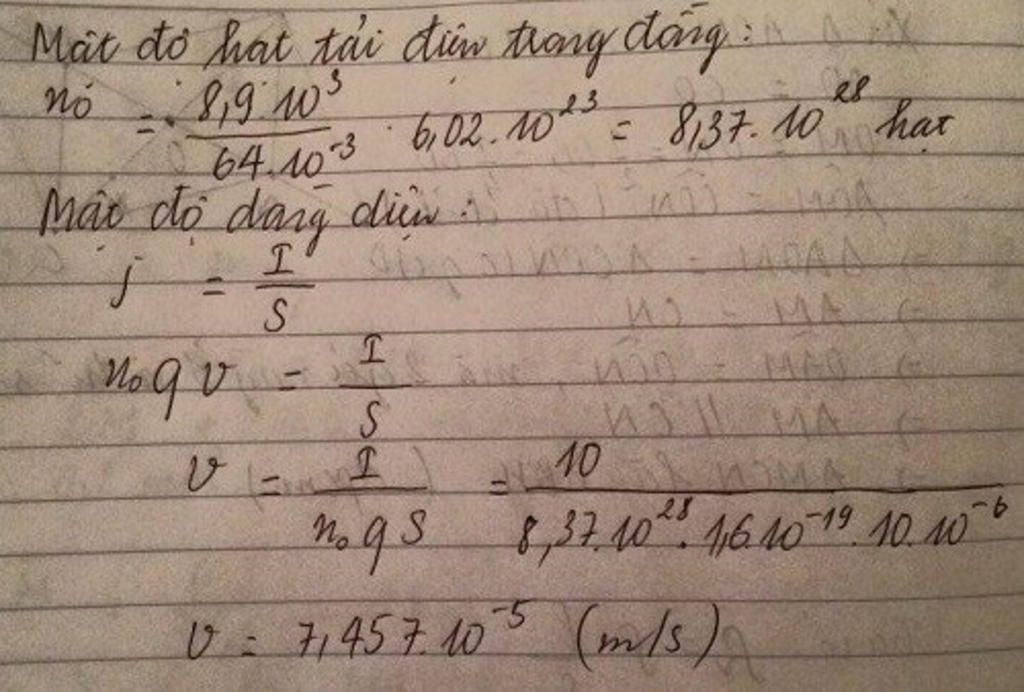 Mật độ hạt tải điện trong đồng:
n₀ = 8,9.10³ / 64.10⁻³ . 6,02.10²³ = 8,37.10²⁸ hạt
Mật độ dòng điện:
j = I / S
n₀ q v = I / S
v = I / n₀ q S = 10 / 8,37.10²⁸.1,6.10⁻¹⁹.10.10⁻⁶
v = 7,457.10⁻⁵ (m/s)